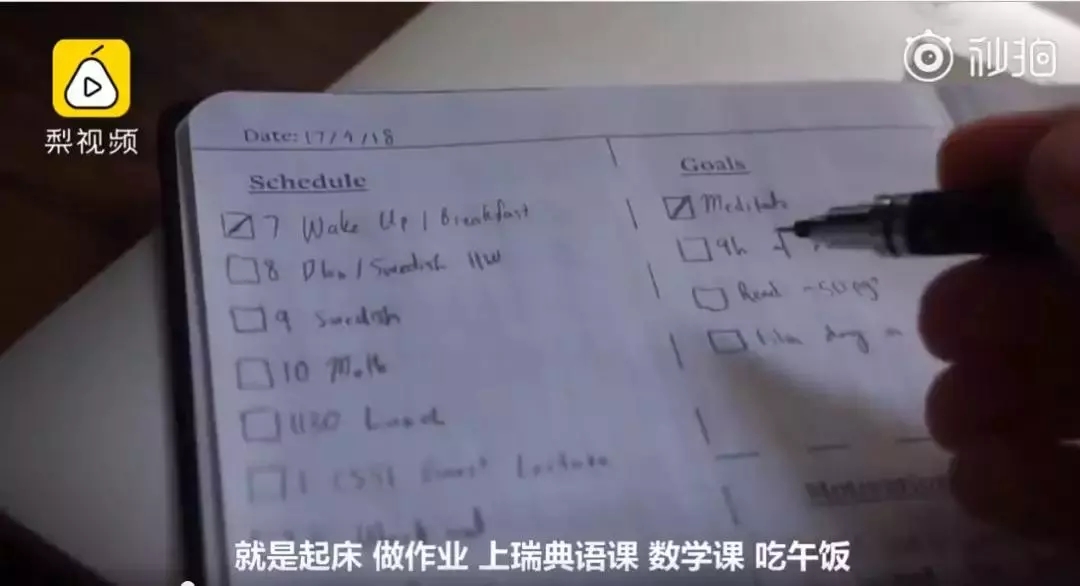 梨视频
秒拍
Date: 17/4/18
Schedule
7 Wake Up / Breakfast
8 / Swedish HW
9 Swedish
10 Math
1130 Lunch
1 Guest Lecture
Work out
Goals
Meditate
9h of
Read ~50 pgs
Film day in
Motivation
就是起床 做作业 上瑞典语课 数学课 吃午饭